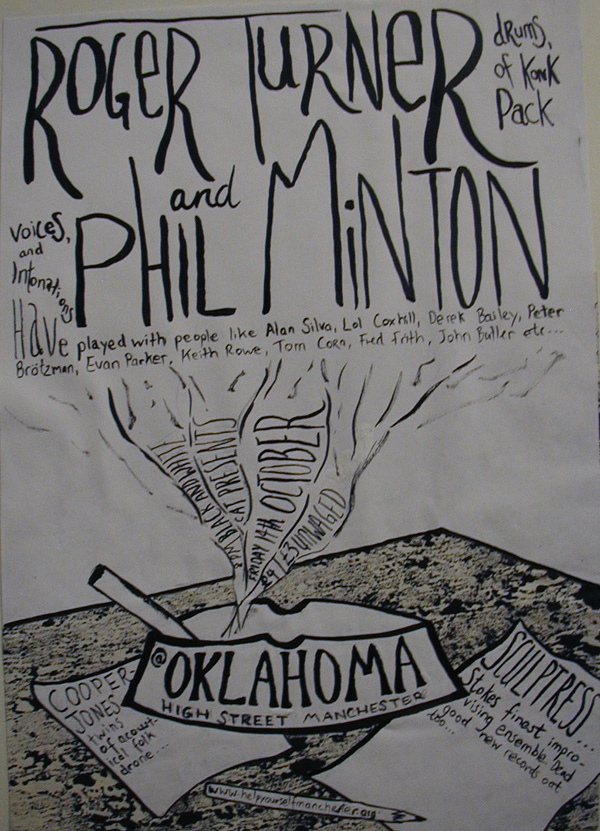 ROGER TURNER
drums,
of Konk
Pack
and
PHIL MINTON
Voices,
and
Intonations
Have played with people like Alan Silva, Lol Coxhill, Derek Bailey, Peter
Brötzman, Evan Parker, Keith Rowe, Tom Cora, Fred Frith, John Butler etc...
BLACK AND WHITE
CAT PRESENTS
FRIDAY 14TH OCTOBER
UNWAGED
@OKLAHOMA
HIGH STREET MANCHESTER
COOPER-
JONES
twins
of acoust-
ical folk
drone...
SCULPTRESS...
Stokes finest impro-
vising ensemble. Dead
good new records out
too...
www.helpyourselfmanchester.org